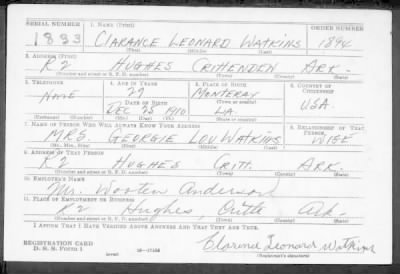 SERIAL NUMBER 1. NAME (Print) ORDER NUMBER
1833 CLARANCE LEONARD WATKINS 1894
(First) (Middle) (Last)
2. ADDRESS (Print)
R2 HUGHES CRITTENDEN ARK.
(Number and street or R. F. D. number) (Town) (County) (State)
3. TELEPHONE 4. AGE IN YEARS 5. PLACE OF BIRTH 6. COUNTRY OF CITIZENSHIP
NONE 29 MONTERAY
DATE OF BIRTH (Town or county)
DEC 25 1910 LA. USA
(Exchange) (Number) (Mo.) (Day) (Yr.) (State or country)
7. NAME OF PERSON WHO WILL ALWAYS KNOW YOUR ADDRESS 8. RELATIONSHIP OF THAT PERSON
MRS. GEORGIE LOU WATKINS WIFE
(Mr., Mrs., Miss) (First) (Middle) (Last)
9. ADDRESS OF THAT PERSON
R2 HUGHES CRITT. ARK.
(Number and street or R. F. D. number) (Town) (County) (State)
10. EMPLOYER'S NAME
Mr. Wooten Anderson
11. PLACE OF EMPLOYMENT OR BUSINESS
R2 Hughes, Critt Ark.
(Number and street or R. F. D. number) (Town) (County) (State)
I AFFIRM THAT I HAVE VERIFIED ABOVE ANSWERS AND THAT THEY ARE TRUE.
REGISTRATION CARD
D. S. S. FORM 1 Clarence Leonard Watkins
(over) (Registrant's signature)